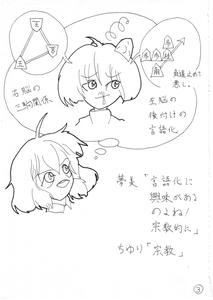 右脳の
三駒関係
角道止めて
悪し。
左脳の
後付けの
言語化
夢美「言語化に
興味がある
のよね!
宗教的に」
ちゆり「宗教」
③